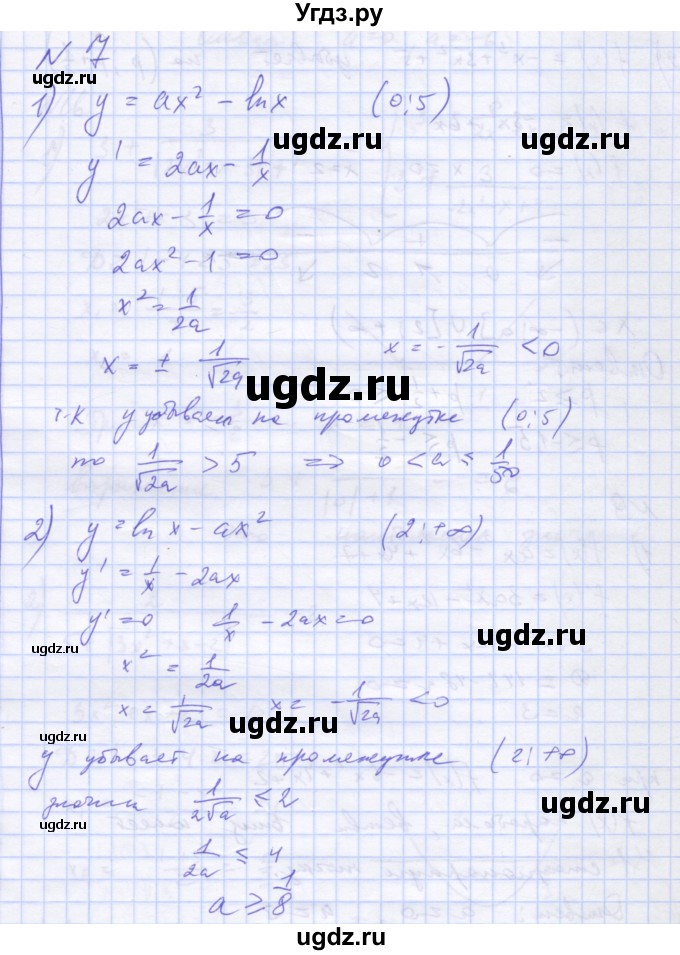 Угдз.ру
№ 7
ugdz.ru ugdz.ru
1) y = ax² - ln x (0; 5)
ugdz.ru ugdz.ru
y' = 2ax - 1/x
2ax - 1/x = 0
ugdz.ru
2ax² - 1 = 0
x² = 1/2a
x = ± 1/√2a x = - 1/√2a < 0
ugdz.ru
т.к y убывает на промежутке (0; 5)
ugdz.ru
то 1/√2a > 5 ⇒ 0 < a ≤ 1/50
2) y = ln x - ax² (2; +∞)
y' = 1/x - 2ax
ugdz.ru
y' = 0 1/x - 2ax = 0
ugdz.ru
x² = 1/2a
x = 1/√2a x = - 1/√2a < 0
ugdz.ru
y убывает на промежутке (2; +∞)
значит 1/2√a ≤ 2
ugdz.ru
1/2a ≤ 4
ugdz.ru
a ≥ 1/8
ugdz.ru